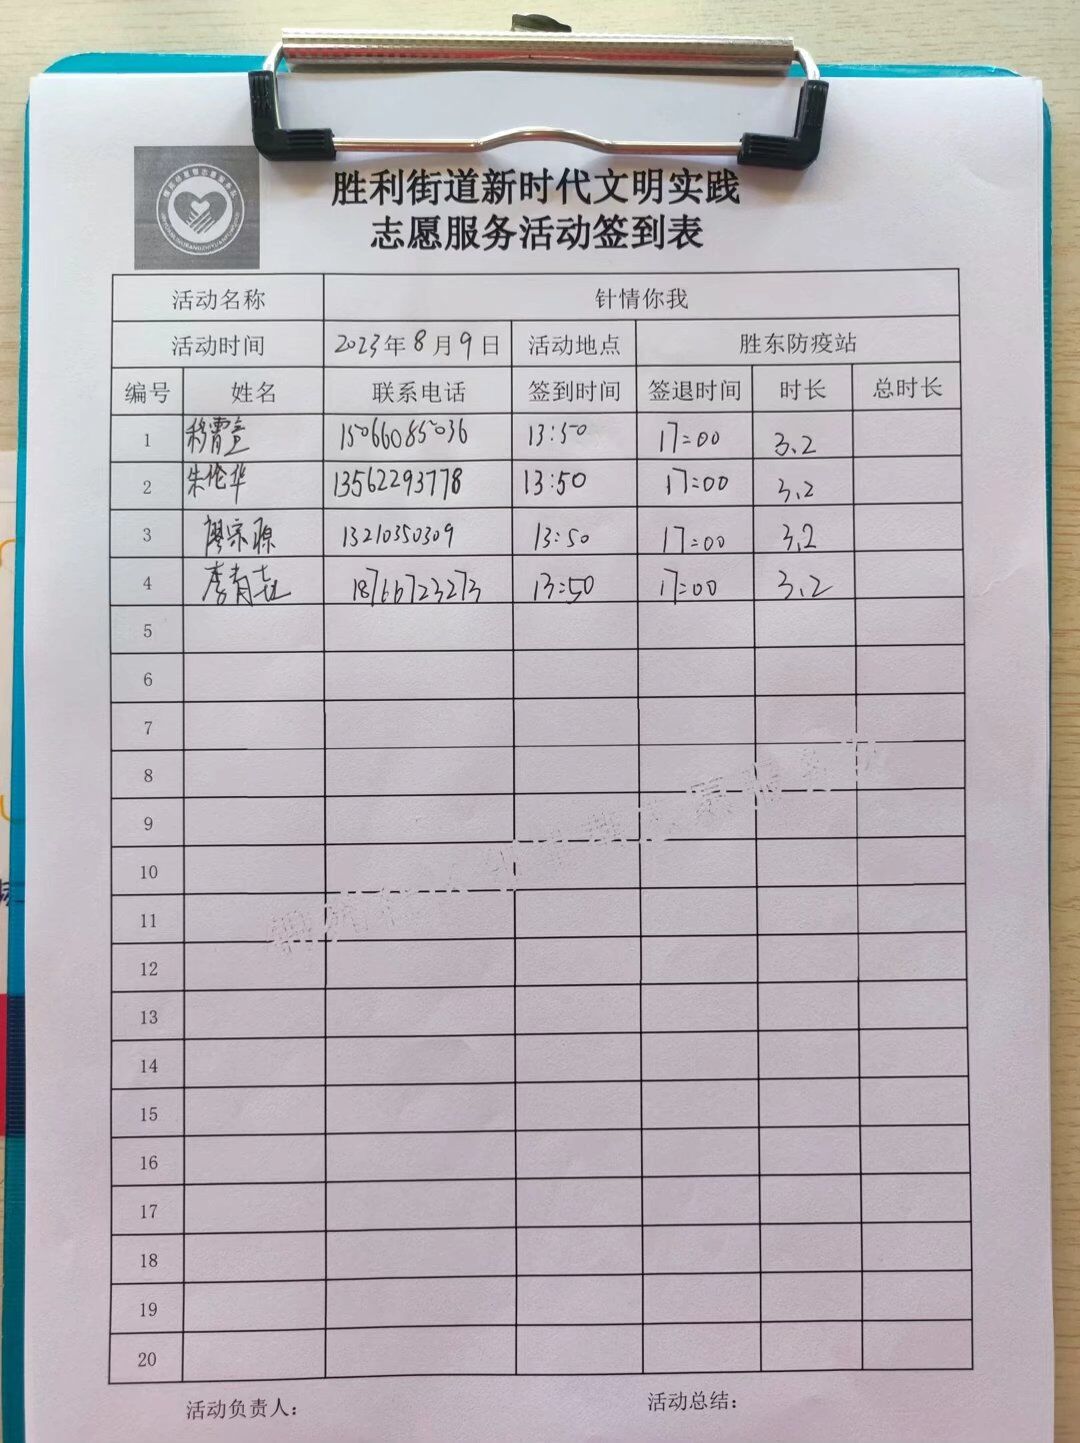 胜利街道新时代文明实践
志愿服务活动签到表
活动名称 针情你我
活动时间 2023年8月9日 活动地点 胜东防疫站
编号 姓名 联系电话 签到时间 签退时间 时长 总时长
1 穆霄萱 15066085036 13:50 17:00 3.2
2 朱伦华 13562293778 13:50 17:00 3.2
3 廖宗源 13210350309 13:50 17:00 3.2
4 李青 18766723273 13:50 17:00 3.2
5
6
7
8
9
10
11
12
13
14
15
16
17
18
19
20
活动负责人： 活动总结：